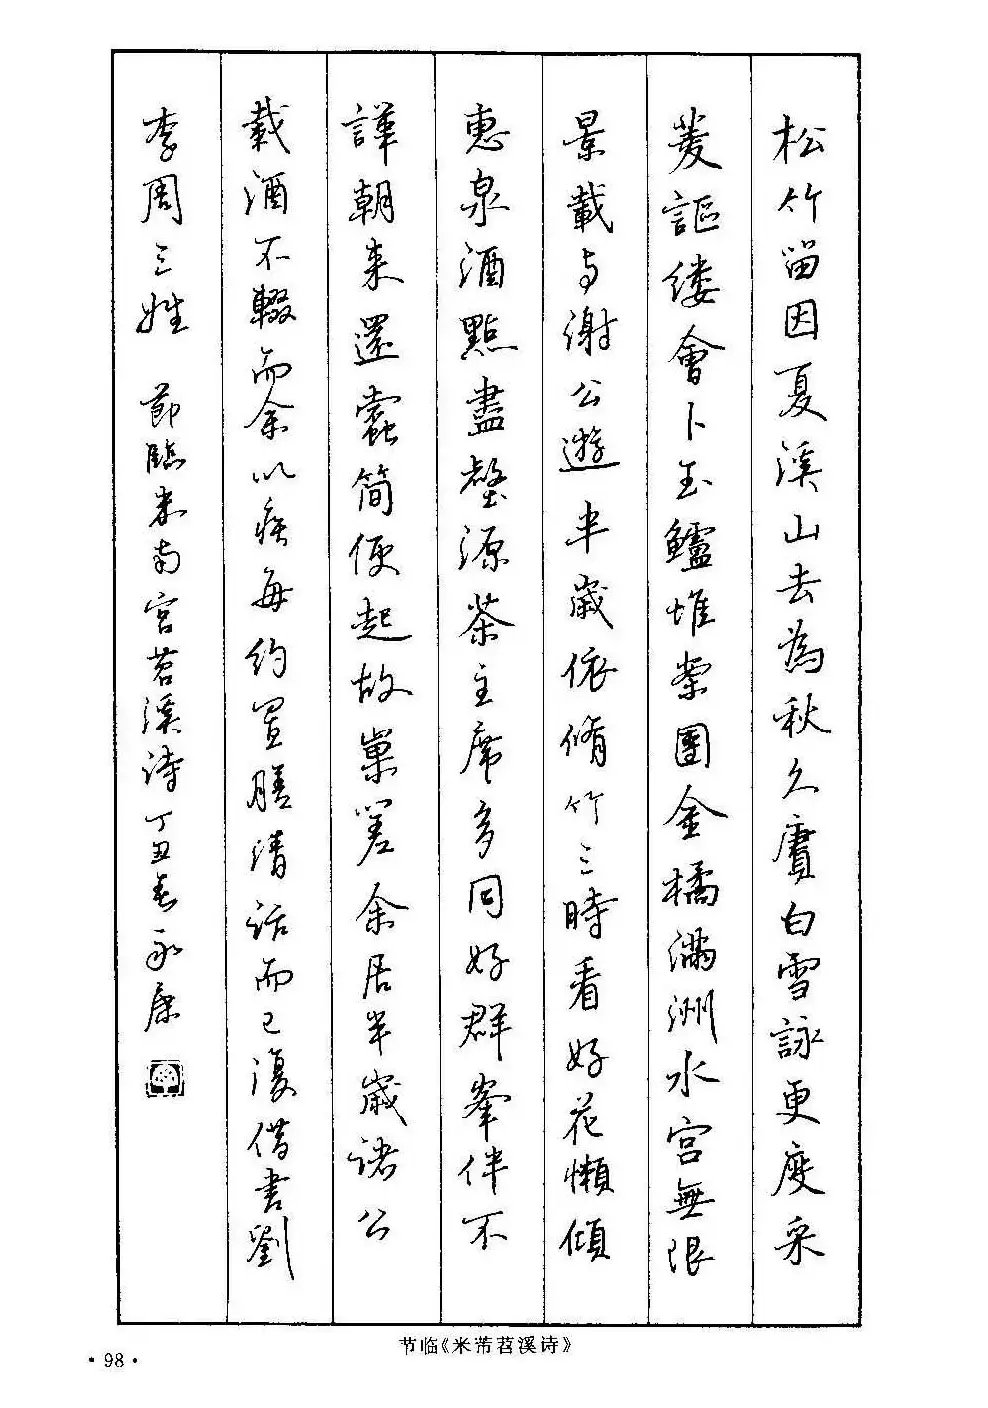 松竹留因夏溪山去為秋久賡白雪詠更度采
菱謳縷會卜玉鱸堆案團金橘滿洲水宫無限
景載与謝公遊半歲依脩竹三時看好花懶傾
惠泉酒點盡壑源茶主席多同好群峯伴不
譁朝来還蠹简便起故巢嗟余居半歲诸公
載酒不輟而余以疾每約置膳清话而已復借書劉
李周三姓 節臨米南宫苕溪诗丁丑春永康
节临《米芾苕溪诗》
·98·